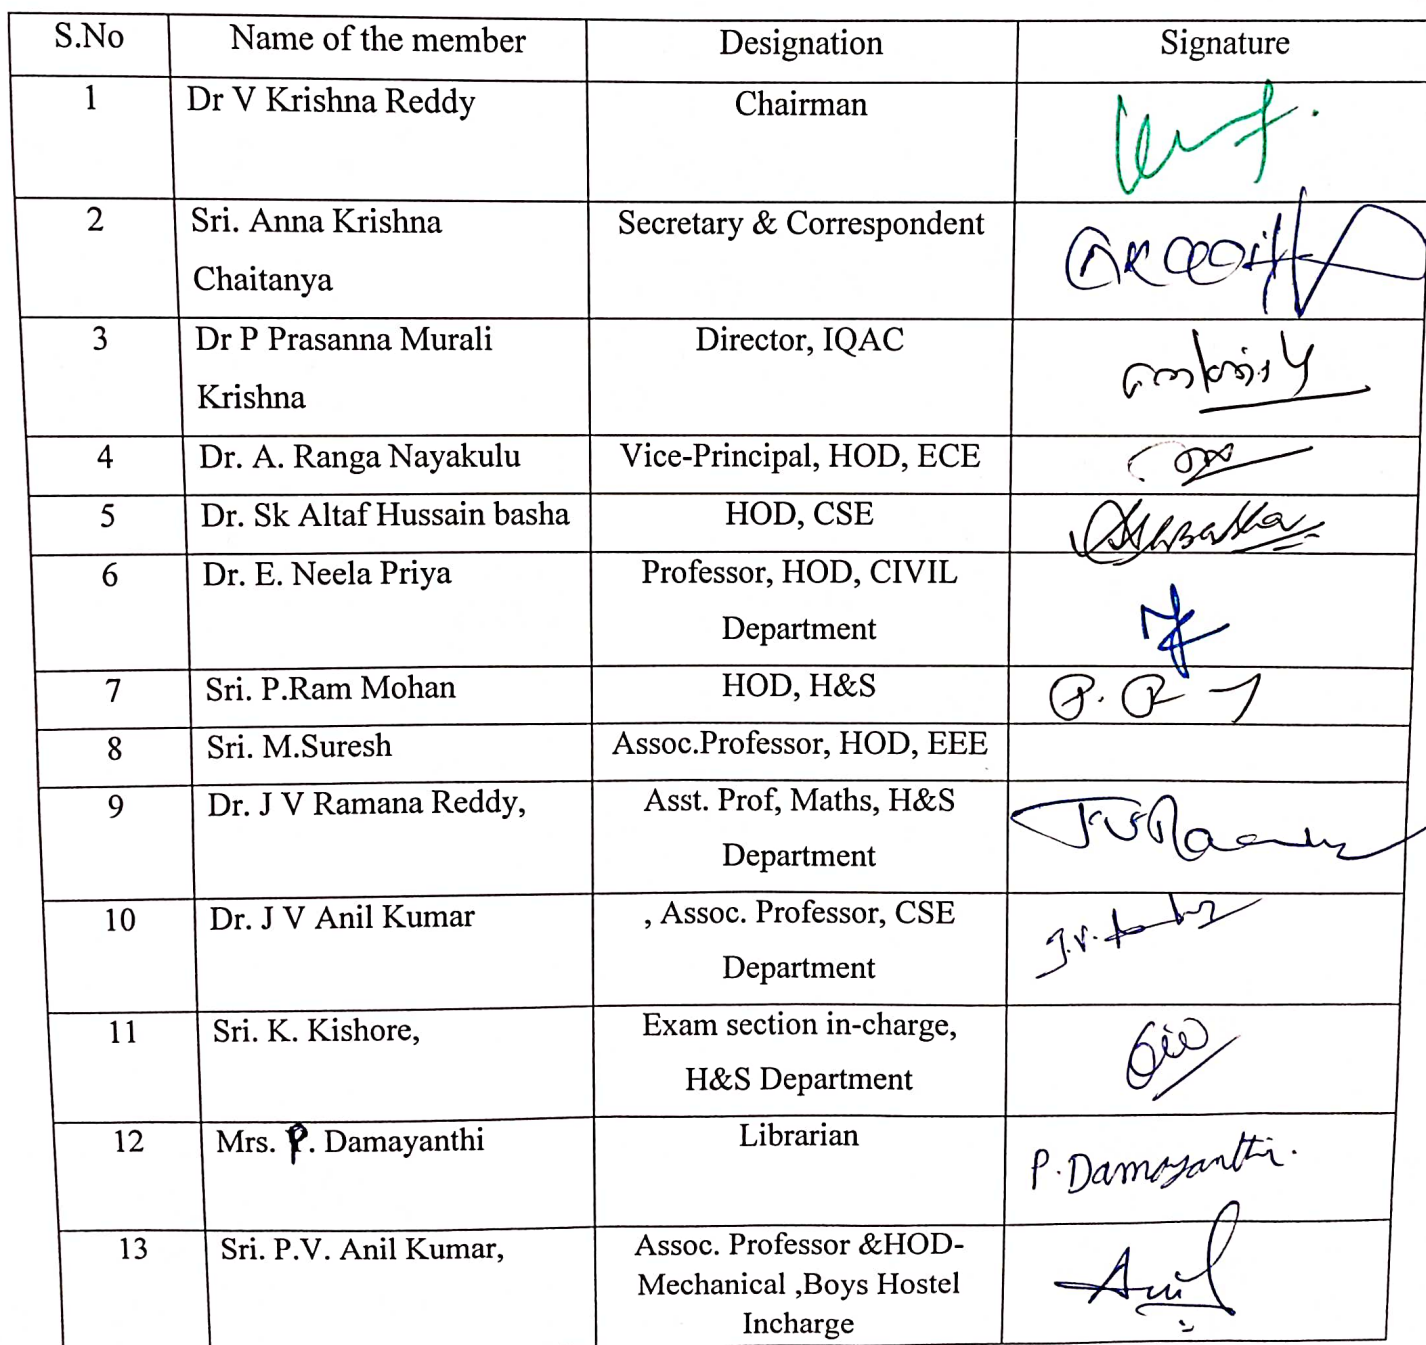 S.No Name of the member Designation Signature
1 Dr V Krishna Reddy Chairman
2 Sri. Anna Krishna Secretary & Correspondent
Chaitanya
3 Dr P Prasanna Murali Director, IQAC
Krishna
4 Dr. A. Ranga Nayakulu Vice-Principal, HOD, ECE
5 Dr. Sk Altaf Hussain basha HOD, CSE
6 Dr. E. Neela Priya Professor, HOD, CIVIL
Department
7 Sri. P.Ram Mohan HOD, H&S
8 Sri. M.Suresh Assoc.Professor, HOD, EEE
9 Dr. J V Ramana Reddy, Asst. Prof, Maths, H&S
Department
10 Dr. J V Anil Kumar , Assoc. Professor, CSE
Department
11 Sri. K. Kishore, Exam section in-charge,
H&S Department
12 Mrs. P. Damayanthi Librarian P. Damayanthi.
13 Sri. P.V. Anil Kumar, Assoc. Professor &HOD-
Mechanical ,Boys Hostel Anil
Incharge